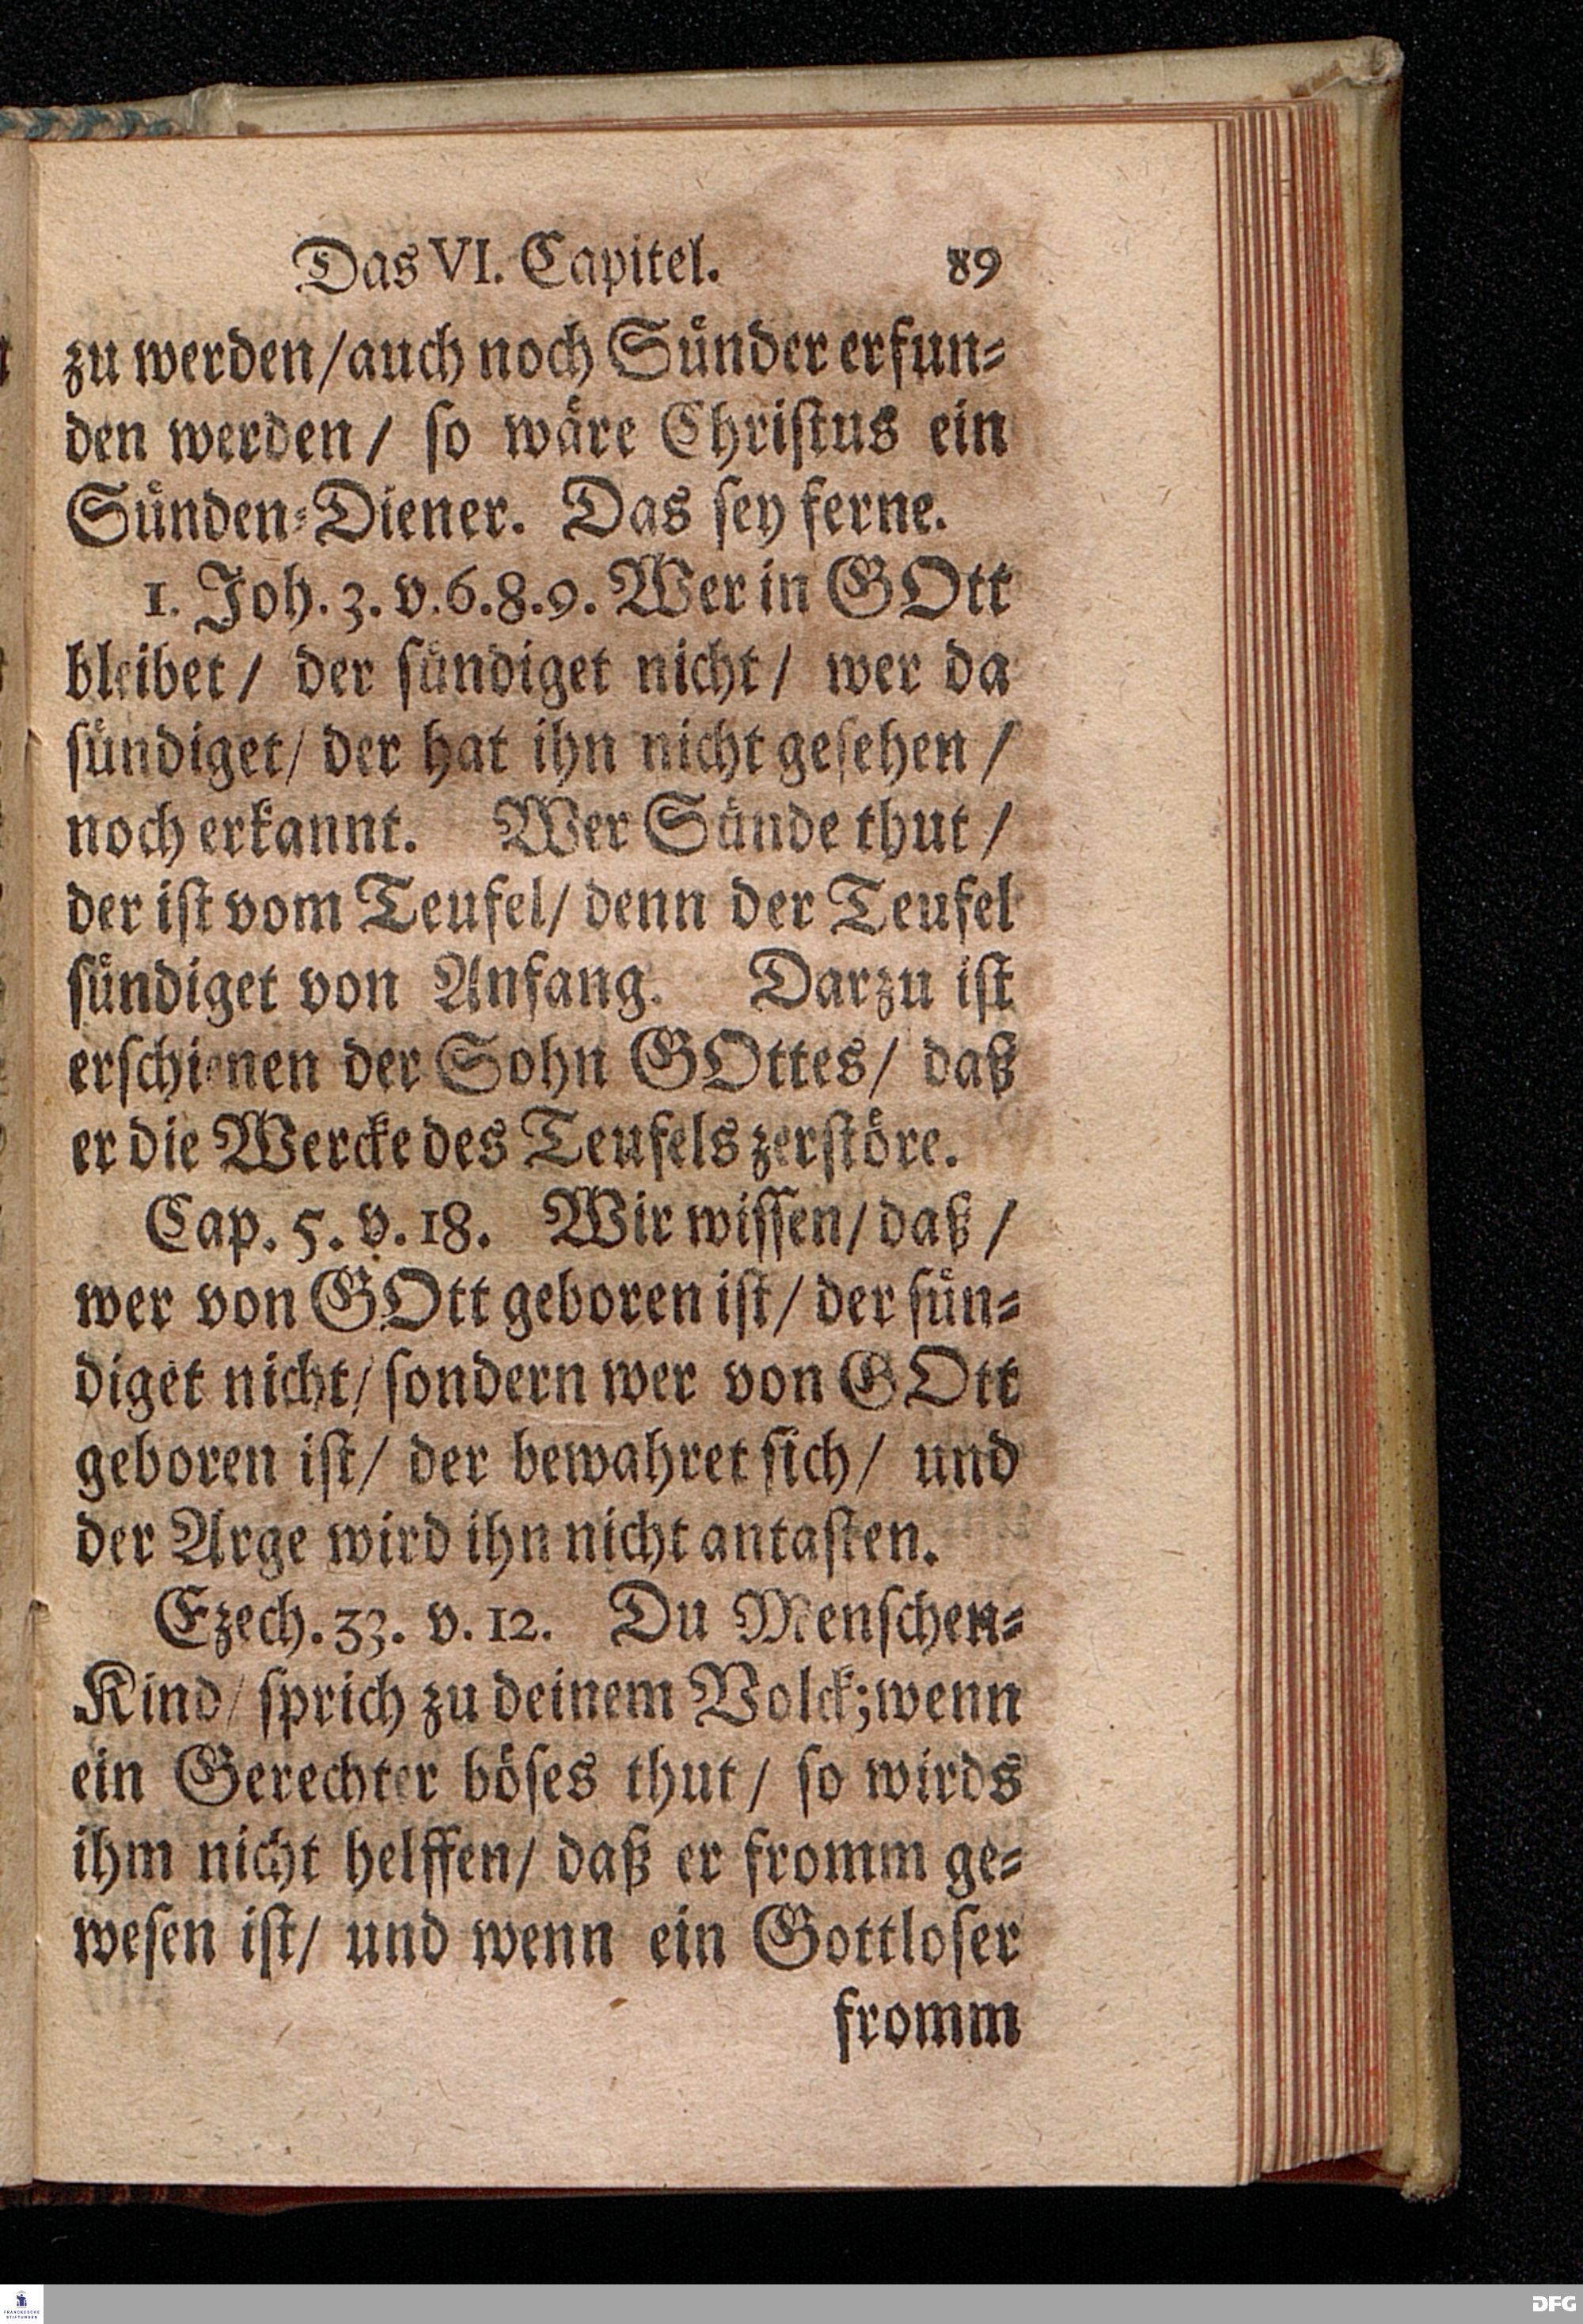 Das VI. Capitel. 89
zu werden/auch noch Sünder erfun-
den werden/ so wäre Christus ein
Sünden-Diener. Das sey ferne.
1. Joh. 3. v. 6. 8. 9. Wer in GOtt
bleibet/ der sündiget nicht/ wer da
sündiget/ der hat ihn nicht gesehen/
noch erkannt. Wer Sünde thut/
der ist vom Teufel/ denn der Teufel
sündiget von Anfang. Darzu ist
erschienen der Sohn GOttes/ daß
er die Wercke des Teufels zerstöre.
Cap. 5. v. 18. Wir wissen/ daß/
wer von GOtt geboren ist/ der sün-
diget nicht/ sondern wer von GOtt
geboren ist/ der bewahret sich/ und
der Arge wird ihn nicht antasten.
Ezech. 33. v. 12. Du Menschen-
Kind/ sprich zu deinem Volck; wenn
ein Gerechter böses thut/ so wirds
ihm nicht helffen/ daß er fromm ge-
wesen ist/ und wenn ein Gottloser
fromm
FRANCKESCHE
STIFTUNGEN
DFG